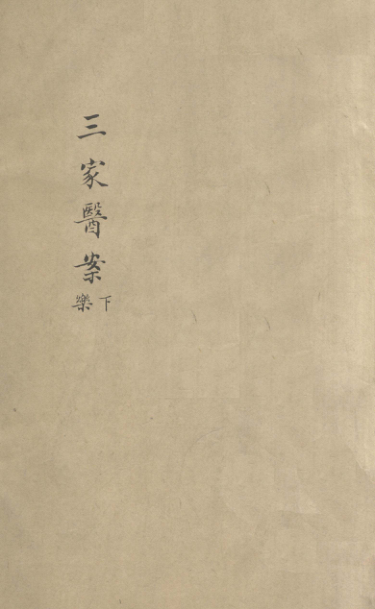 三家醫案
下
樂